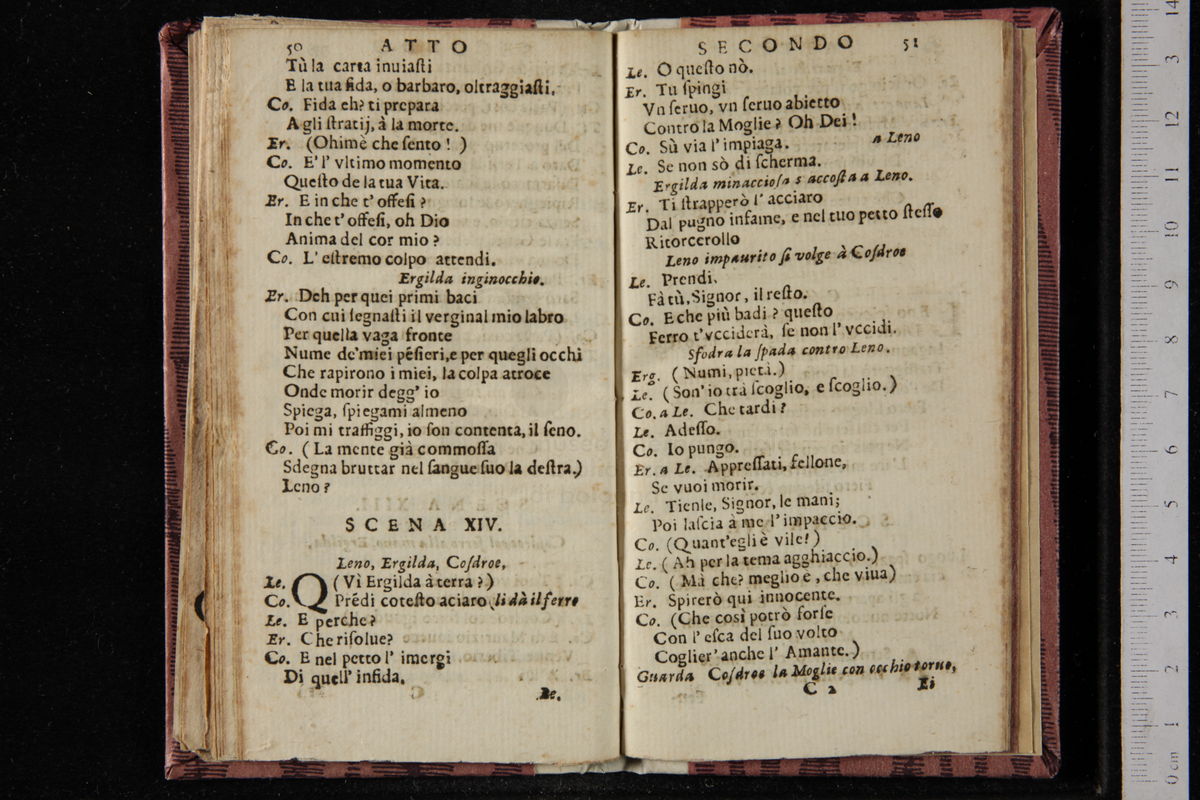 50 ATTO
Tù la carta inuiaſti
E la tua fida, o barbaro, oltraggiaſti.
Co. Fida eh? ti prepara
A gli ſtratij, à la morte.
Er. (Ohimè che ſento! )
Co. E' l' vltimo momento
Queſto de la tua Vita.
Er. E in che t' offeſi ?
In che t' offeſi, oh Dio
Anima del cor mio ?
Co. L' eſtremo colpo attendi.
Ergilda inginocchio.
Er. Deh per quei primi baci
Con cui ſegnaſti il verginal mio labro
Per quella vaga fronte
Nume de'miei pẽſieri,e per quegli occhi
Che rapirono i miei, la colpa atroce
Onde morir degg' io
Spiega, ſpiegami almeno
Poi mi traffiggi, io ſon contenta, il ſeno.
Co. ( La mente già commoſſa
Sdegna bruttar nel ſangue ſuo la deſtra.)
Leno ?
SCENA XIV.
Leno, Ergilda, Coſdroe,
Le. Q (Vì Ergilda à terra ? )
Co. Prẽdi coteſto aciaro li dà il ferro
Le. E perche?
Er. Che riſolue?
Co. E nel petto l' imergi
Di quell' infida.
Le.
SECONDO 51
Le. O queſto nò.
Er. Tu ſpingi
Vn ſeruo, vn ſeruo abietto
Contro la Moglie ? Oh Dei !
Co. Sù via l' impiaga. a Leno
Le. Se non sò di ſcherma.
Ergilda minaccioſa s accoſta a Leno.
Er. Ti ſtrapperò l' acciaro
Dal pugno infame, e nel tuo petto ſteſſo
Ritorcerollo
Leno impaurito ſi volge à Coſdroe
Le. Prendi.
Fà tù, Signor, il reſto.
Co. E che più badi ? queſto
Ferro t'vcciderà, ſe non l' vccidi.
Sfodra la ſpada contro Leno.
Erg. ( Numi, pietà.)
Le. (Son' io trà ſcoglio, e ſcoglio.)
Co. a Le. Che tardi ?
Le. Adeſſo.
Co. Io pungo.
Er. a Le. Appreſſati, fellone,
Se vuoi morir.
Le. Tienle, Signor, le mani;
Poi laſcia à me l' impaccio.
Co. (Quant'egli è vile! )
Le. ( Ah per la tema agghiaccio.)
Co. ( Mà che? meglio è , che viua)
Er. Spirerò qui innocente.
Co. (Che così potrò forſe
Con l' eſca del ſuo volto
Coglier' anche l' Amante. )
Guarda Coſdroe la Moglie con occhio toruo,
C 2 Ei